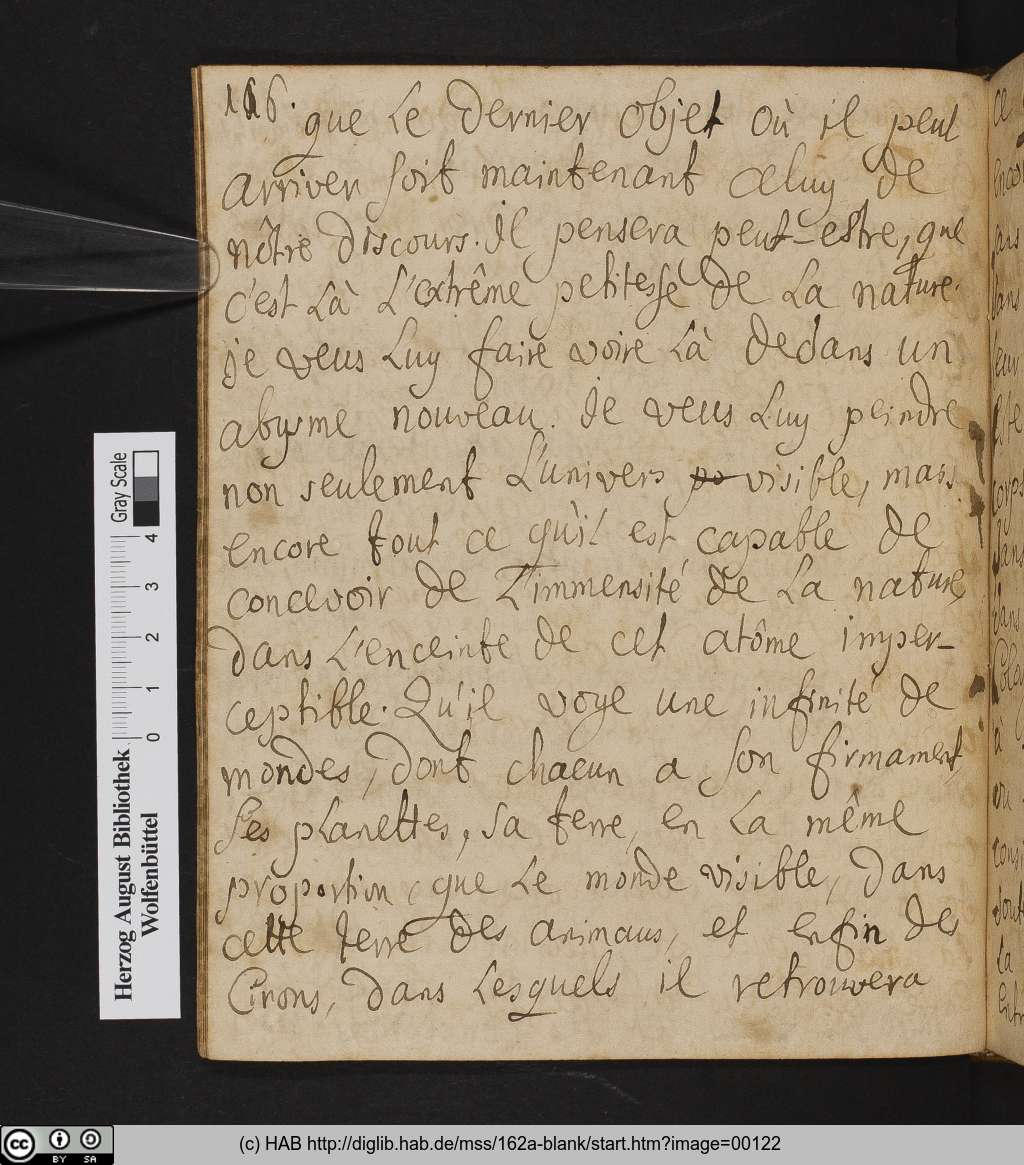 116.
que Le dernier objet où il peut
arriver soit maintenant celuy de
nôtre discours. Il pensera peut-estre, que
c'est Là L'extrême petitesse de La nature.
je veus Luy faire voire Là dedans un
abysme nouveau. Je veus Luy peindre
non seulement L'univers visible, mais
encore tout ce qu'il est capable de
concevoir de L'immensité de La nature,
dans L'enceinte de cet atôme imper-
ceptible. Qu'il voye une infinité de
mondes, dont chacun a son firmament,
ses planettes, sa terre, en La même
proportion, que Le monde visible, dans
cette terre des animaus, et enfin des
Cirons, dans Lesquels il retrouvera
Gray Scale
0 1 2 3 4
Herzog August Bibliothek
Wolfenbüttel
cc BY SA
(c) HAB http://diglib.hab.de/mss/162a-blank/start.htm?image=00122